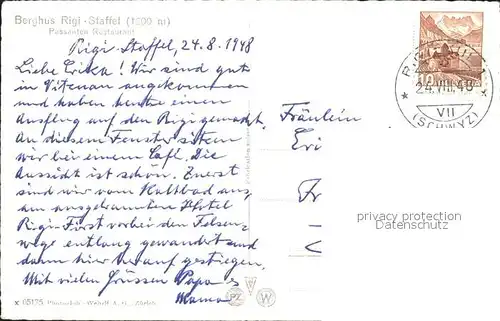 Berghus Rigi-Staffel (1600 m)
Passanten Restaurant
Rigi-Staffel, 24.8.1948
Liebe Erika! Wir sind gut
in Vitznau angekommen
und haben heute einen
Ausflug auf den Rigi gemacht.
An diesem Fenster sitzen
wir bei einem Café. Die
Aussicht ist schön. Zuerst
sind wir vom Kaltbad aus,
am ausgebrannten Hotel
Rigi-First vorbei den Felsen-
wege entlang gewandert und
dann hier herauf gestiegen.
Mit vielen Grüssen Papa &
Mama
Fräulein
Eri
Fr
24.VIII.48
VII
(SCHWYZ)
10
privacy protection
Datenschutz